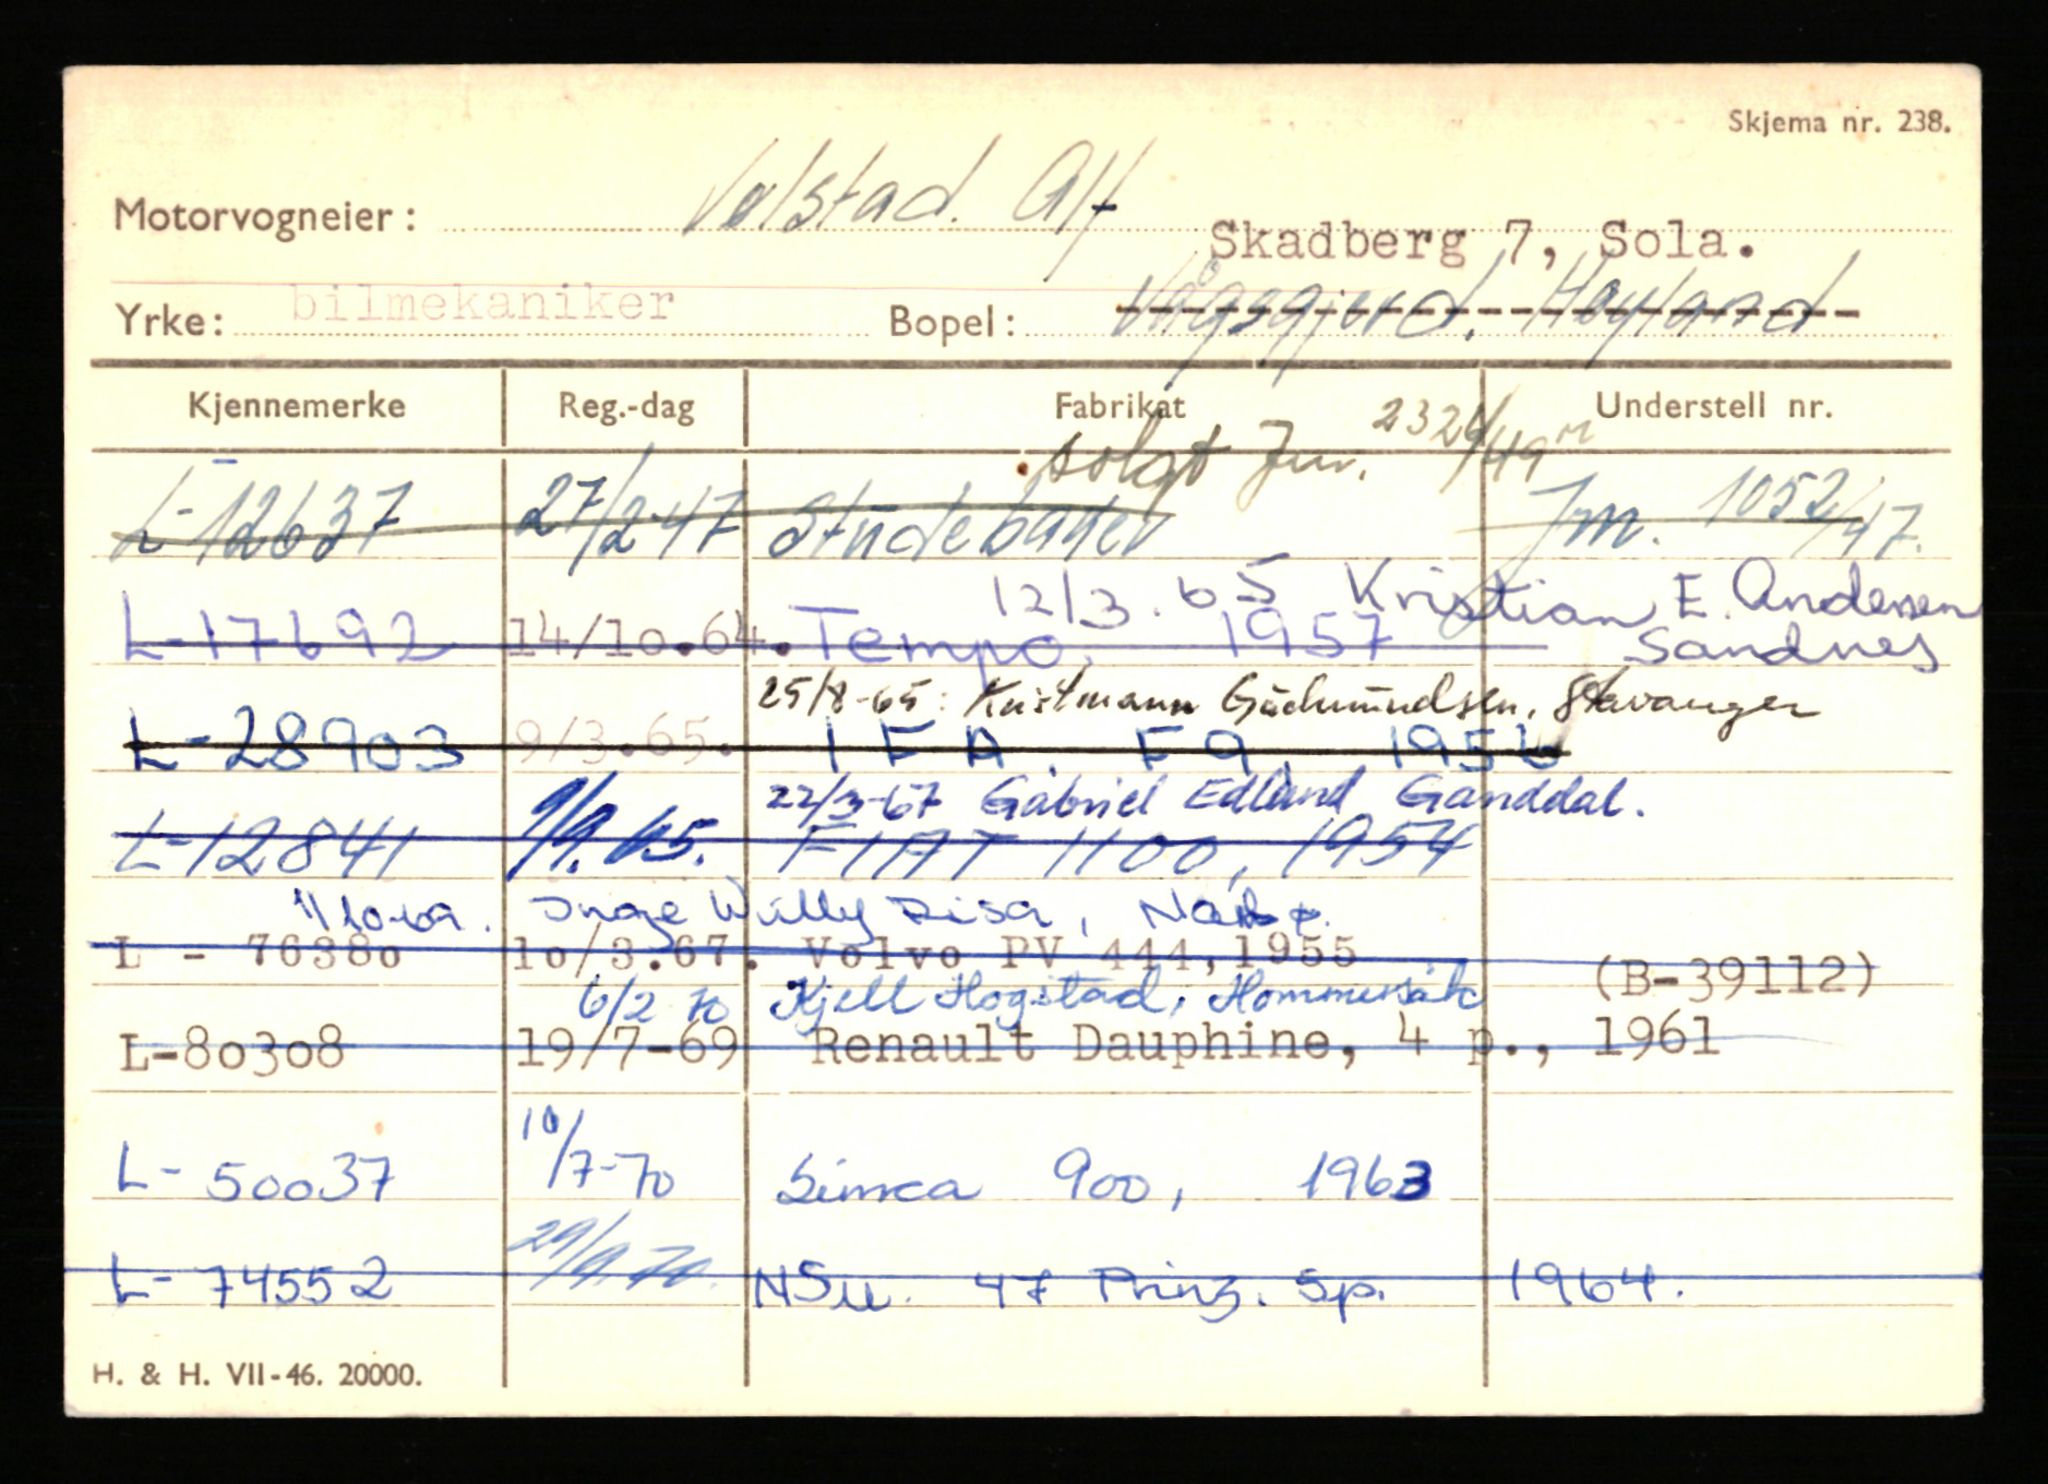 Skjema nr. 238.
Motorvogneier: Volstad. Alf
Skadberg 7, Sola.
Yrke: bilmekaniker Bopel: Vågsgjerd, Høyland
Kjennemerke Reg.-dag Fabrikat Understell nr.
solgt Jnr. 2324/49
L-12637 27/2-47 Studebaker Jm. 1052/47.
12/3.65 Kristian E. Andersen
L-17692 14/10.64. Tempo, 1957 Sandnes
25/8-65: Kristmann Gudmundsen, Stavanger
L-28903 9/3.65. IFA. F9, 1956
22/3-67 Gabriel Edland Ganddal.
L-12841 9/9.65. FIAT 1100, 1954
1/10-69. Inge Willy Risa, Nærbø.
L - 76380 10/3.67. Volvo PV 444,1955 (B-39112)
6/2 70 Kjell Hogstad, Hommersåk
L-80308 19/7-69 Renault Dauphine, 4 p., 1961
L- 50037 10/7-70 Simca 900, 1963
L- 74552 29/9.70. NSU. 47 Prinz. Sp. 1964.
H. & H. VII-46. 20000.